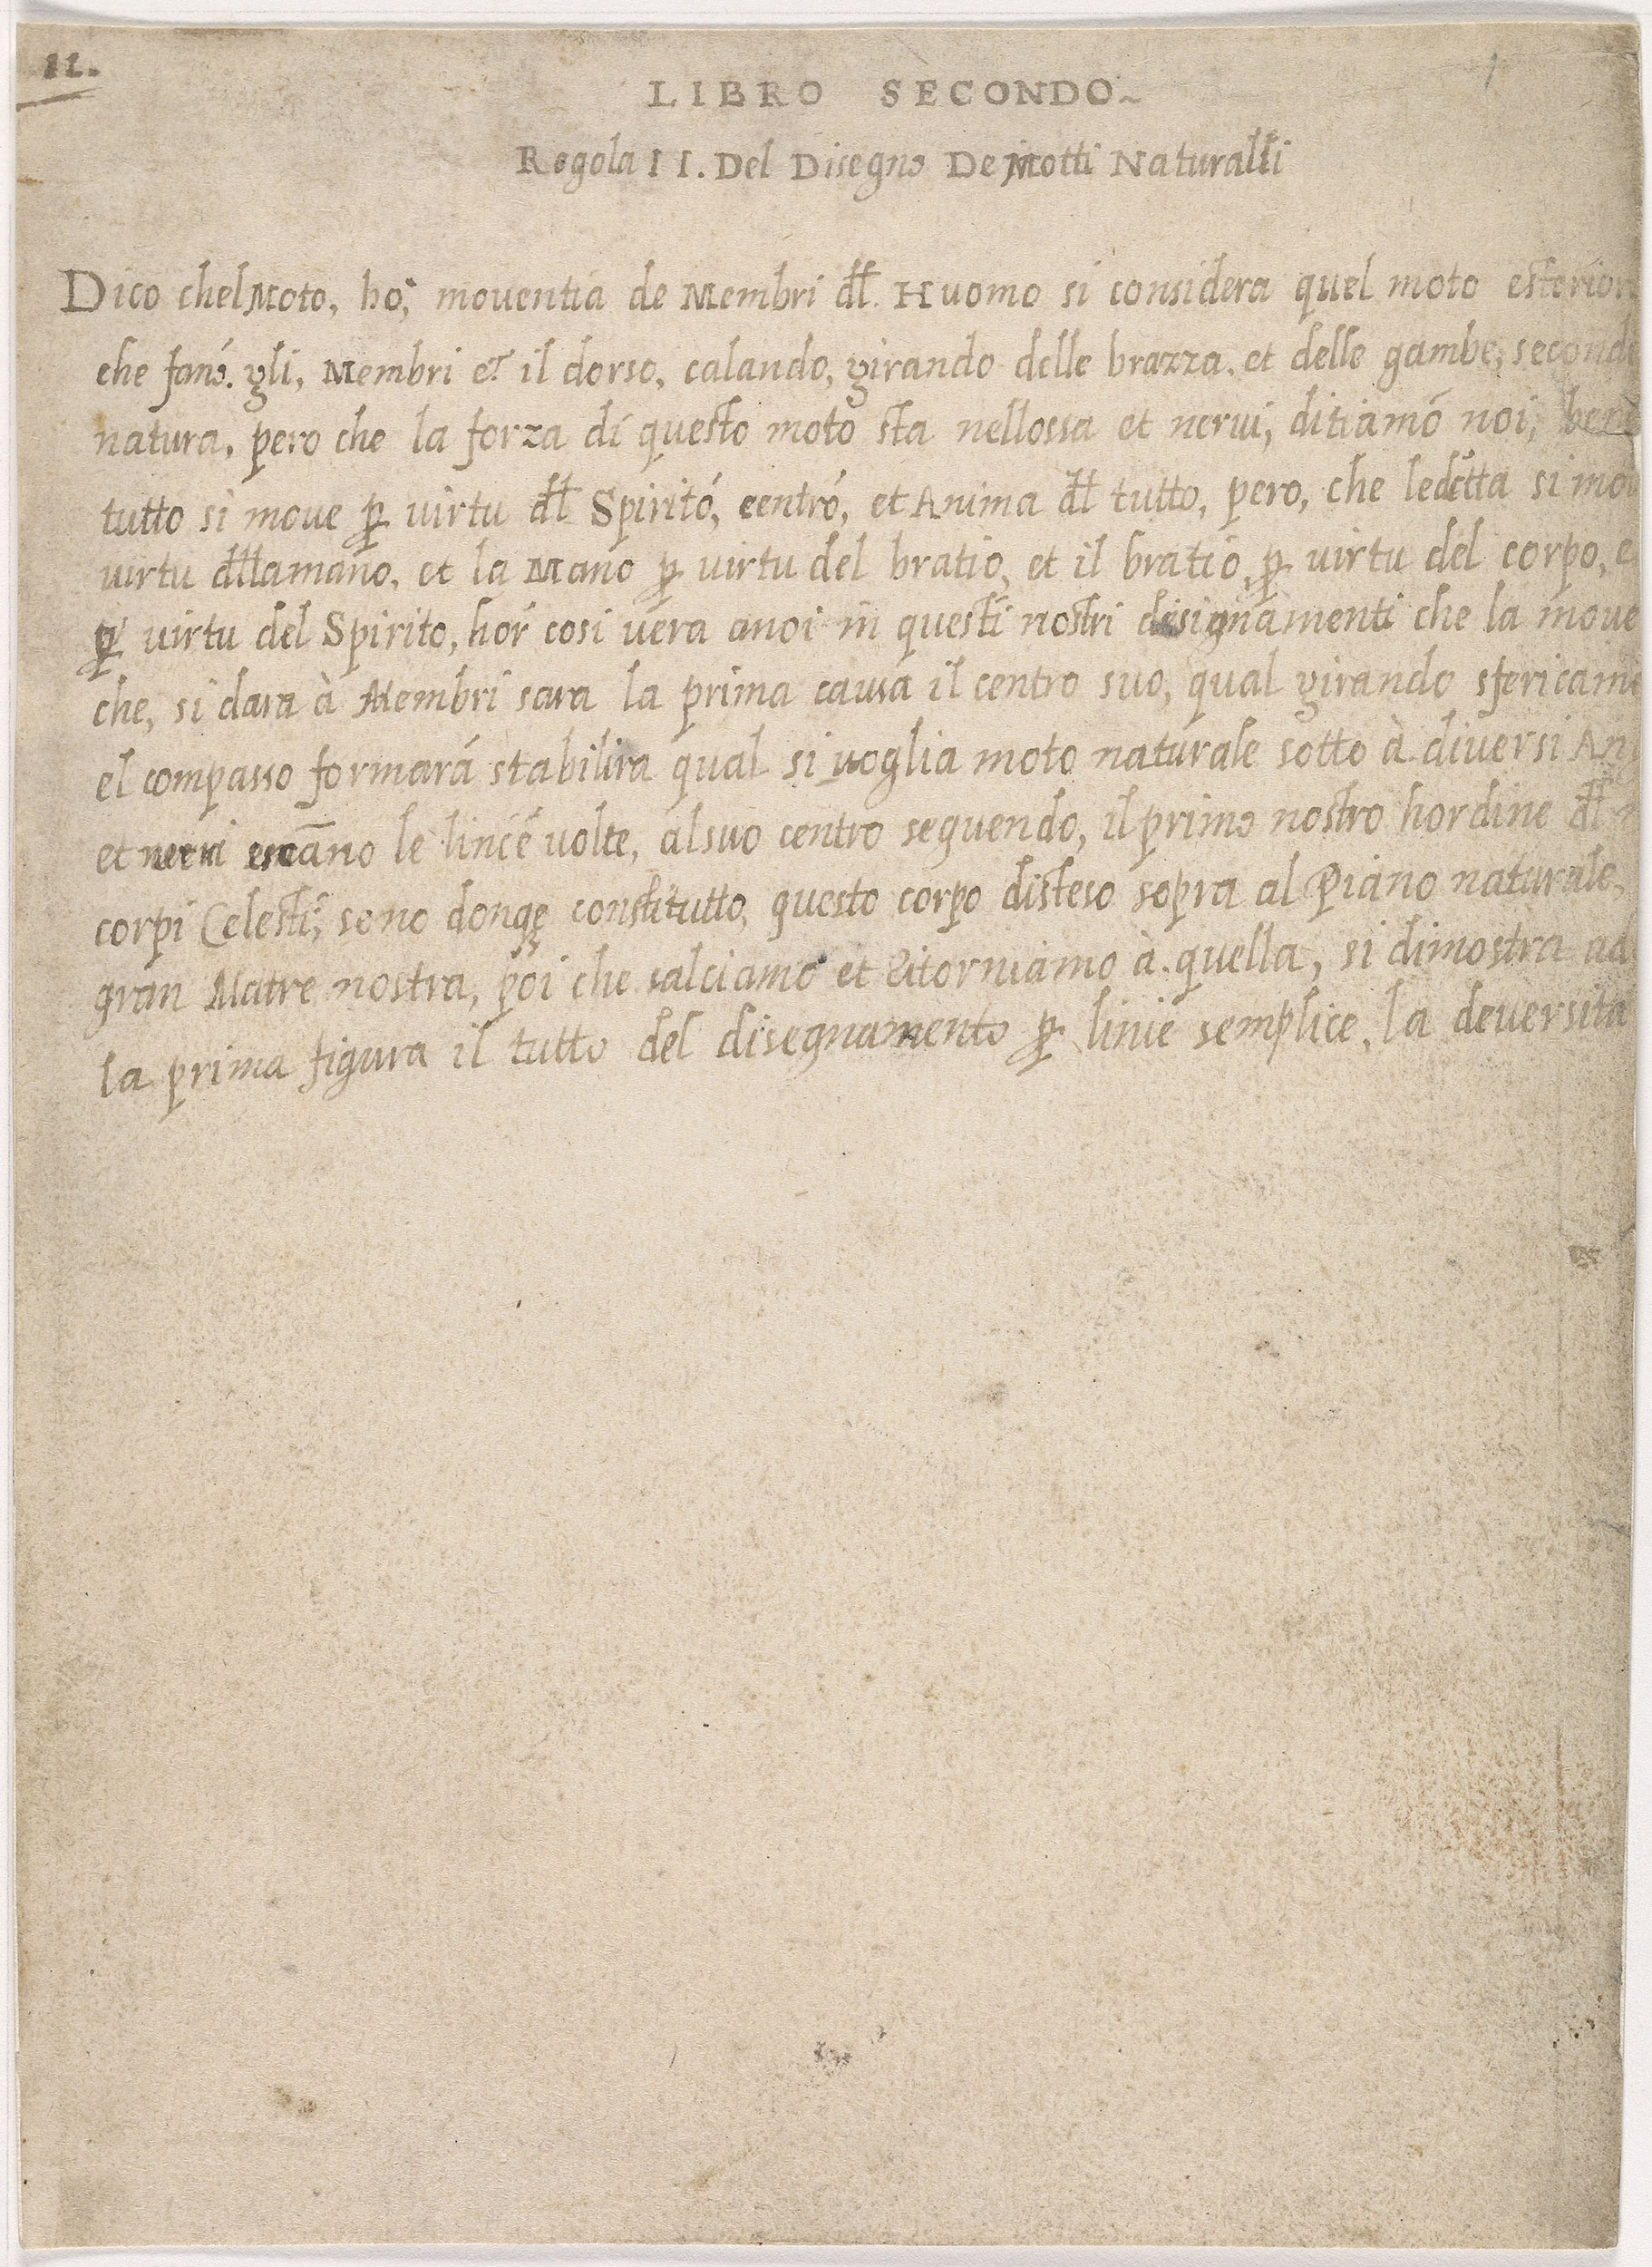 II.
LIBRO SECONDO~
Regola II. Del Disegno De Motti Naturalli
Dico chel Moto, ho, moventia de Membri dll. Huomo si considera quel moto esterior
che fano. gli, Membri et il dorso, calando, girando delle brazza. et delle gambe, secondo
natura, pero che la forza di questo moto sta nellossa et nerui, ditiamo noi,
tutto si move p virtu dll Spirito, centro, et Anima dll tutto, pero, che si mov
virtu dllamano, et la Mano p virtu del bratio, et il bratio, p virtu del corpo, e
p virtu del Spirito, hor cosi vera anoi in questi nostri disignamenti che la move
che, si dara à Membri sara la prima causa il centro suo, qual girando sfericame
el compasso formara stabilira qual si uoglia moto naturale sotto à diversi Ang
et nerui le linee uolte, alsuo centro seguendo, il primo nostro hordine dll
corpi Celesti, sono donq constitutto, questo corpo disteso sopra al Piano naturale,
gran Matre nostra, poi che salciamo et Ritorniamo à. quella, si dimostra ad
la prima figura il tutto del disegnamento p linie semplice, la deversita